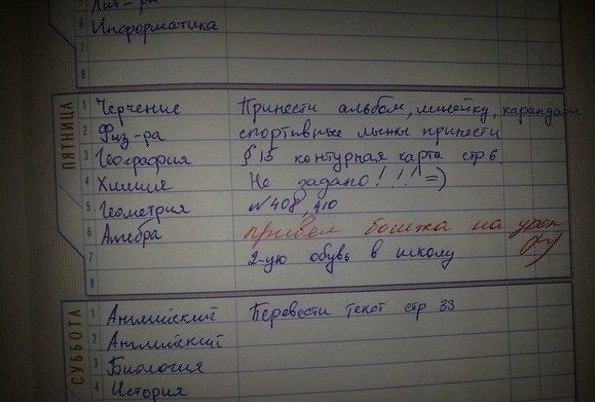 Лит-ра
6 Информатика
7
8
ПЯТНИЦА
1 Черчение Принести альбом, линейку, карандаш
2 Физ-ра спортивные лыжы принести
3 География § 15 контурная карта стр 6
4 Химия Не задано! !!! =)
5 Геометрия №408, 410
6 Алгебра привел бомжа на урок
7 2-ую обувь в школу
8
СУББОТА
1 Английский Перевести текст стр 33
2 Английский
3 Биология
4 История